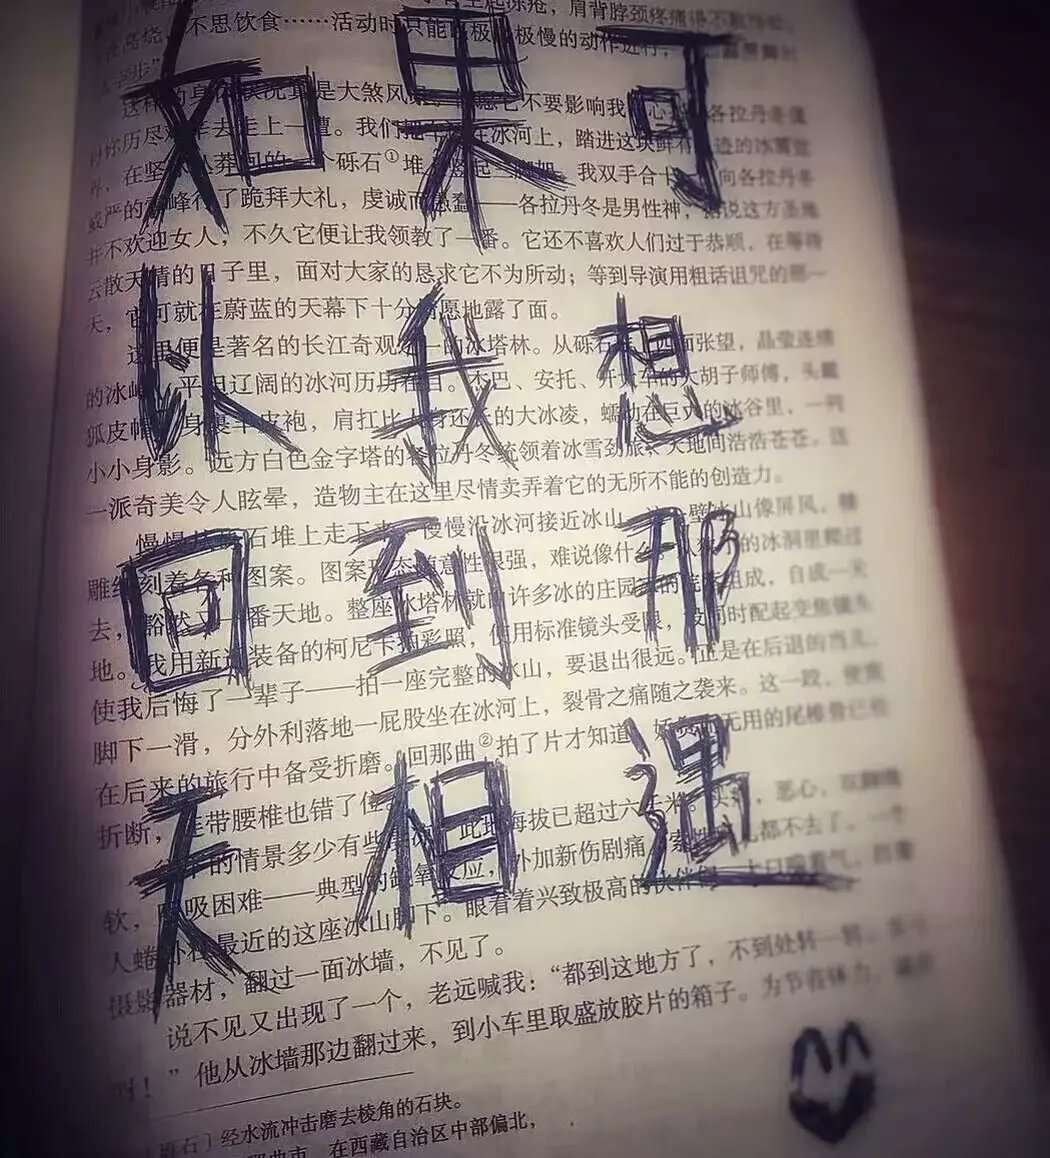 如果可
以我想
回到那
天相遇
不思饮食……活动时只能
是大煞风 不要影响我
历尽 去走上一遭。我们 在冰河上，踏进这块鲜有 迹的冰雪世
界，在坚 莽 一个砾石①堆 。我双手合十 向各拉丹冬
威严的 峰行了跪拜大礼，虔诚而愚蠢——各拉丹冬是男性神，据说这方圣地
并不欢迎女人，不久它便让我领教了一番。它还不喜欢人们过于恭顺，在等待
云散天晴的日子里，面对大家的恳求它不为所动；等到导演用粗话诅咒的那一
天，它可就在蔚蓝的天幕下十分情愿地露了面。
这里便是著名的长江奇观之一的冰塔林。从砾石 四面张望，晶莹连绵
的冰峰 平坦辽阔的冰河历历在目。杰巴、安托、开大车的大胡子师傅，头戴
狐皮帽 身裹羊皮袍，肩扛比人身还长的大冰凌，蠕动在巨大的冰谷里，一列
小小身影。远方白色金字塔的各拉丹冬统领着冰雪劲旅，天地间浩浩苍苍。这
一派奇美令人眩晕，造物主在这里尽情卖弄着它的无所不能的创造力。
慢慢从 石堆上走下来 慢慢沿冰河接近冰山。 壁冰山像屏风，雕
雕 刻着各种图案。图案形态随意性很强，难说像什么 的冰洞里爬过
去，豁然又一番天地。整座冰塔林就由许多冰的庄园 组成，自成一天
地。我用新 装备的柯尼卡拍彩照，使用标准镜头受限，没同时配起变焦镜头
使我后悔了一辈子——拍一座完整的冰山，要退出很远。正是在后退的当儿，
脚下一滑，分外利落地一屁股坐在冰河上，裂骨之痛随之袭来。这一跤，使我
在后来的旅行中备受折磨。回那曲②拍了片才知道， 无用的尾椎骨已经
折断，连带腰椎也错了位。
的情景多少有些 此地海拔已超过六千米。 ，恶心，双脚绵
软，呼吸困难——典型的缺氧反应，外加新伤剧痛 都不去了。一个
人蜷卧在最近的这座冰山脚下。眼看着兴致极高的伙伴们 大口喘着气，
摄影器材，翻过一面冰墙，不见了。
说不见又出现了一个，老远喊我：“都到这地方了，不到处转一转，
啊！”他从冰墙那边翻过来，到小车里取盛放胶片的箱子。为节省体力，
〔砾石〕经水流冲击磨去棱角的石块。
在西藏自治区中部偏北，